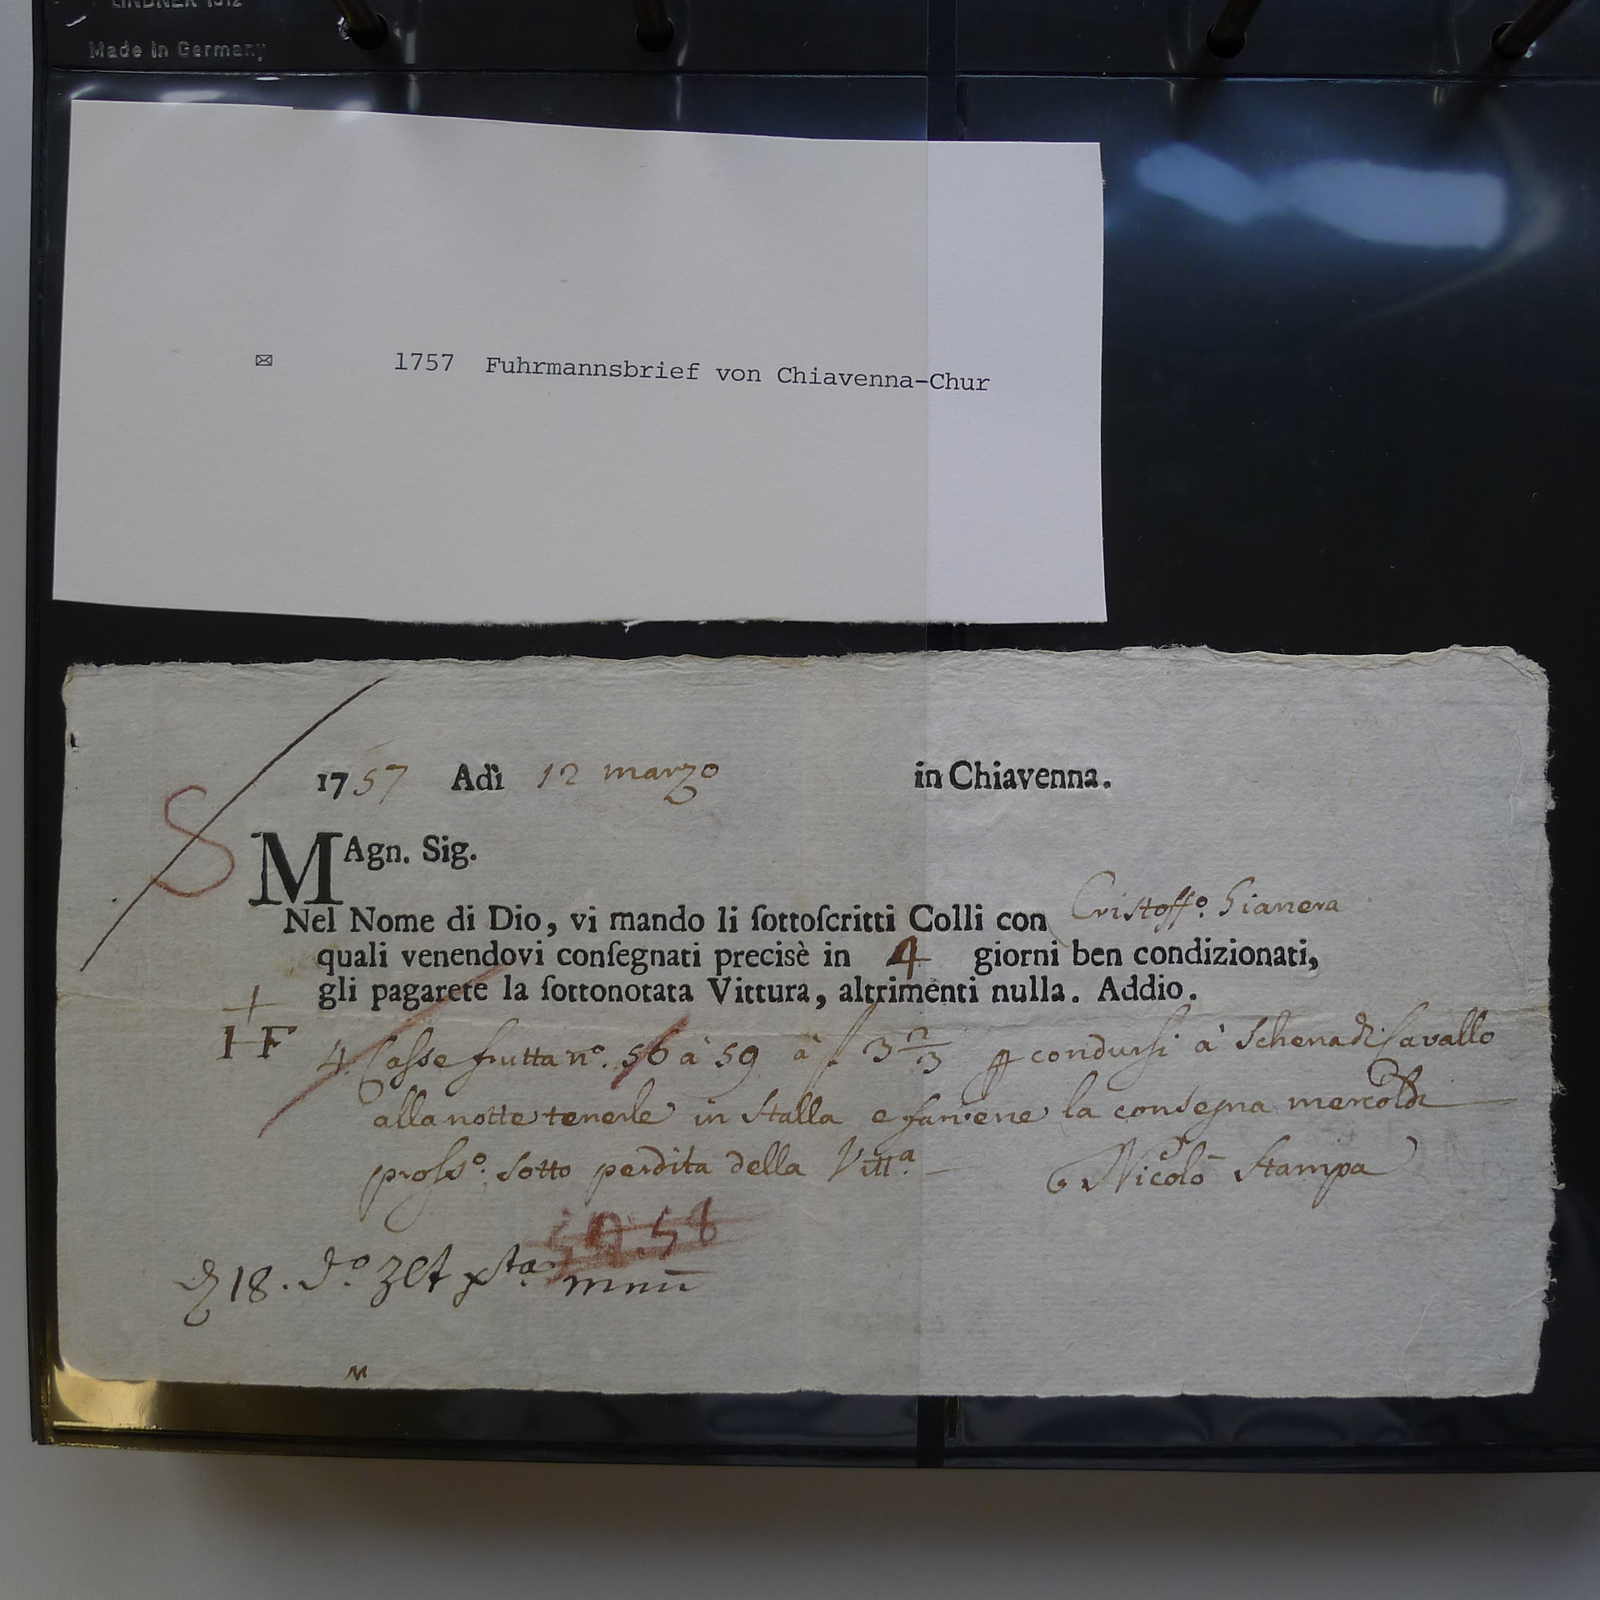 Made in Germany
✉ 1757 Fuhrmannsbrief von Chiavenna-Chur
1757 Adì 12 marzo in Chiavenna.
S
MAgn. Sig.
Nel Nome di Dio, vi mando li ſottoſcritti Colli con Cristoffº. Gianera
quali venendovi conſegnati precisè in 4 giorni ben condizionati,
gli pagarete la ſottonotata Vittura, altrimenti nulla. Addio.
IF 4 Casse frutta nº. 56 à 59 à condursi à Schena di Cavallo
alla notte tenerle in stalla e farvene la consegna
prossº. sotto perdita della Vittª.
Nicolò Stampa
18. dº